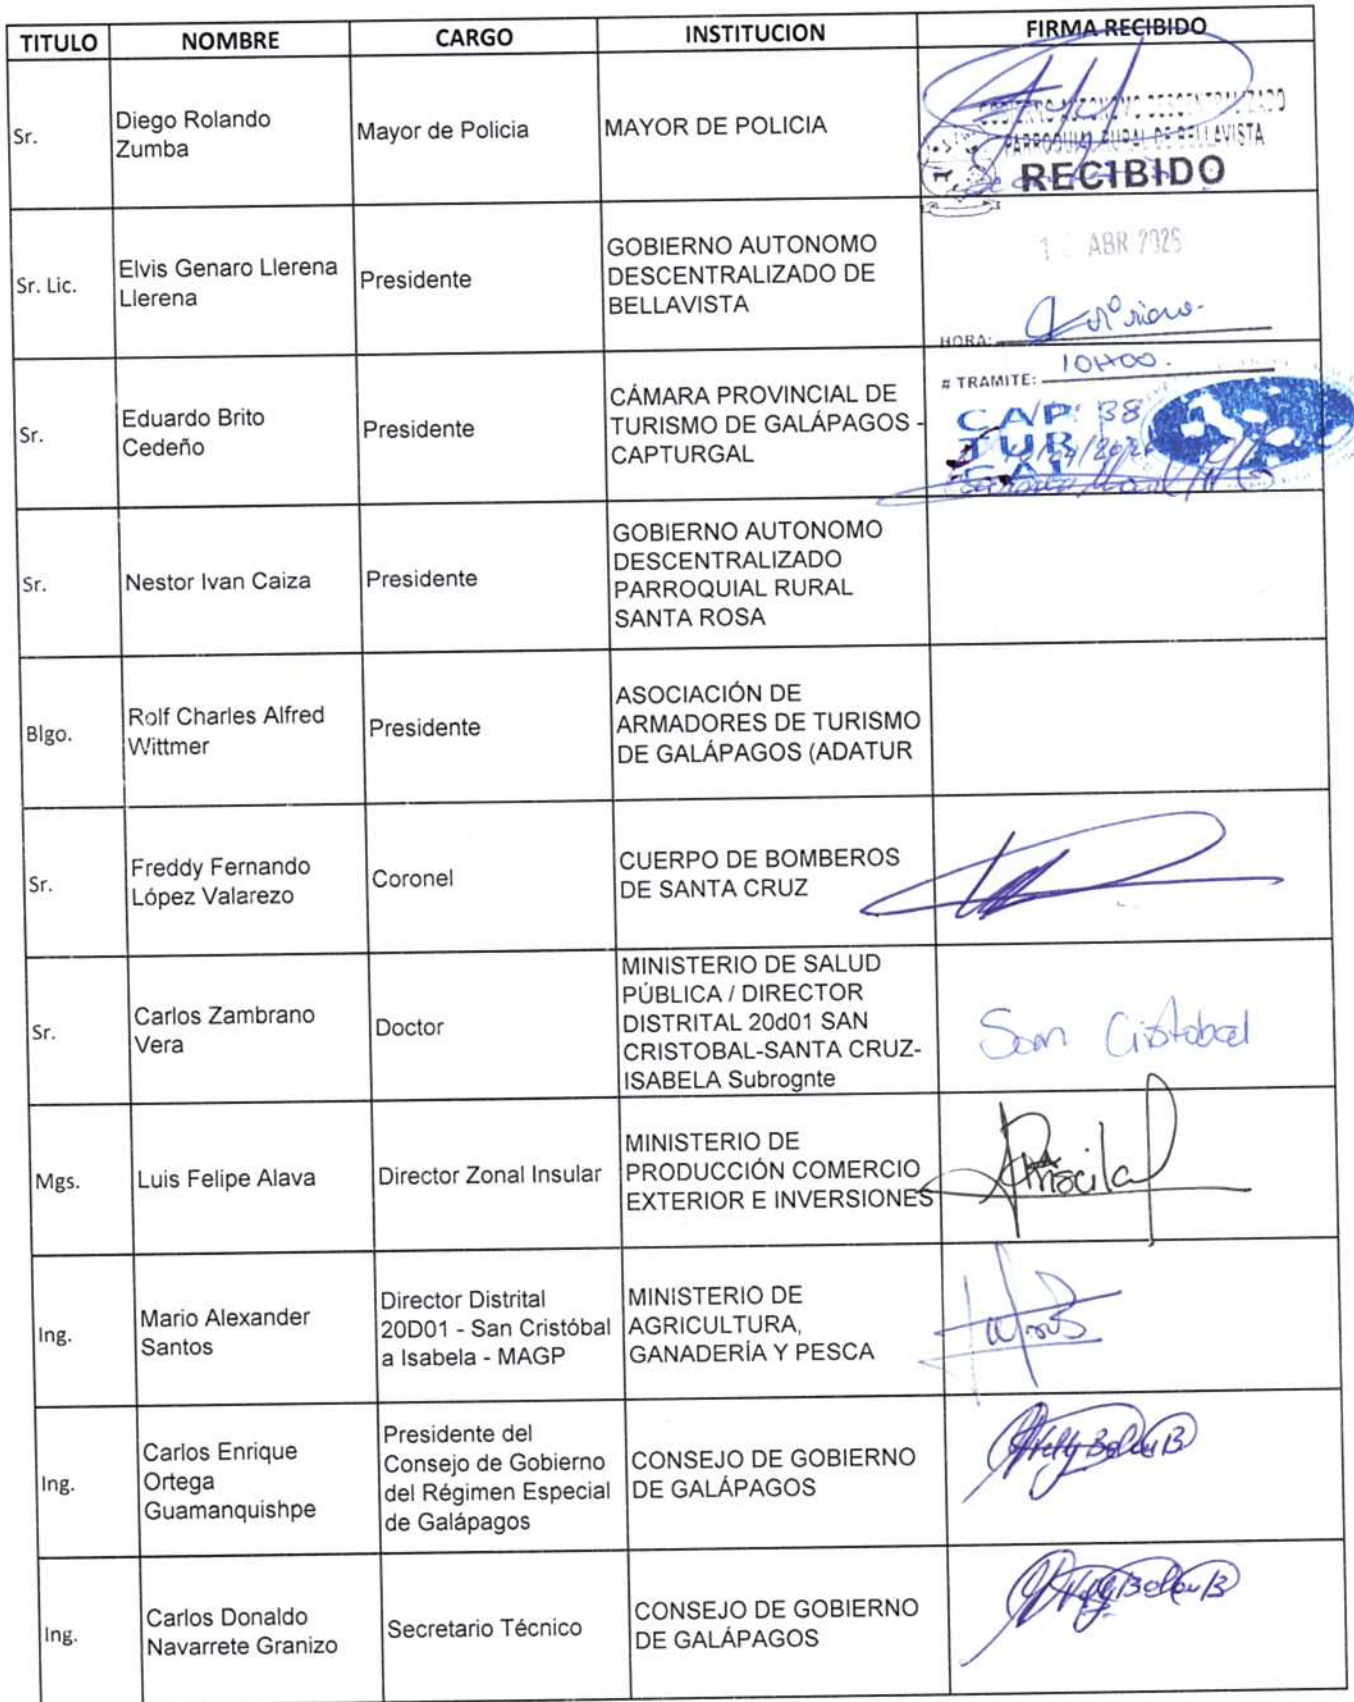 TITULO NOMBRE CARGO INSTITUCION FIRMA RECIBIDO
Sr.
Diego Rolando
Zumba
Mayor de Policia
MAYOR DE POLICIA
GOBIERNO AUTONOMO DESCENTRALIZADO
PARROQUIAL RURAL DE BELLAVISTA
RECIBIDO
Sr. Lic.
Elvis Genaro Llerena
Llerena
Presidente
GOBIERNO AUTONOMO
DESCENTRALIZADO DE
BELLAVISTA
ABR 2026
HORA:
# TRAMITE: 10H00.
Sr.
Eduardo Brito
Cedeño
Presidente
CÁMARA PROVINCIAL DE
TURISMO DE GALÁPAGOS -
CAPTURGAL
CAP
TUR
GAL
Sr.
Nestor Ivan Caiza
Presidente
GOBIERNO AUTONOMO
DESCENTRALIZADO
PARROQUIAL RURAL
SANTA ROSA
Blgo.
Rolf Charles Alfred
Wittmer
Presidente
ASOCIACIÓN DE
ARMADORES DE TURISMO
DE GALÁPAGOS (ADATUR
Sr.
Freddy Fernando
López Valarezo
Coronel
CUERPO DE BOMBEROS
DE SANTA CRUZ
Sr.
Carlos Zambrano
Vera
Doctor
MINISTERIO DE SALUD
PÚBLICA / DIRECTOR
DISTRITAL 20d01 SAN
CRISTOBAL-SANTA CRUZ-
ISABELA Subrognte
San Cristobal
Mgs.
Luis Felipe Alava
Director Zonal Insular
MINISTERIO DE
PRODUCCIÓN COMERCIO
EXTERIOR E INVERSIONES
Ing.
Mario Alexander
Santos
Director Distrital
20D01 - San Cristóbal
a Isabela - MAGP
MINISTERIO DE
AGRICULTURA,
GANADERÍA Y PESCA
Ing.
Carlos Enrique
Ortega
Guamanquishpe
Presidente del
Consejo de Gobierno
del Régimen Especial
de Galápagos
CONSEJO DE GOBIERNO
DE GALÁPAGOS
Ing.
Carlos Donaldo
Navarrete Granizo
Secretario Técnico
CONSEJO DE GOBIERNO
DE GALÁPAGOS